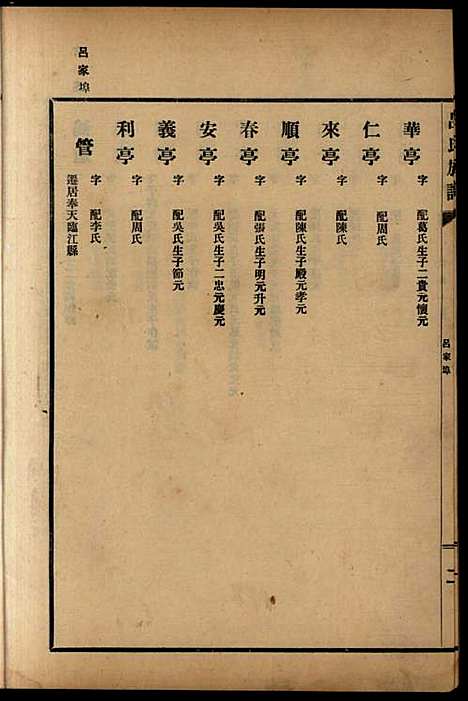 呂氏族譜
呂家埠
二
華亭 字 配葛氏生子二貴元懷元
仁亭 字 配周氏
來亭 字 配陳氏
順亭 字 配陳氏生子殿元孝元
春亭 字 配張氏生子明元升元
安亭 字 配吳氏生子二忠元慶元
義亭 字 配吳氏生子節元
利亭 字 配周氏
管 字 配李氏
遷居奉天臨江縣
呂家埠